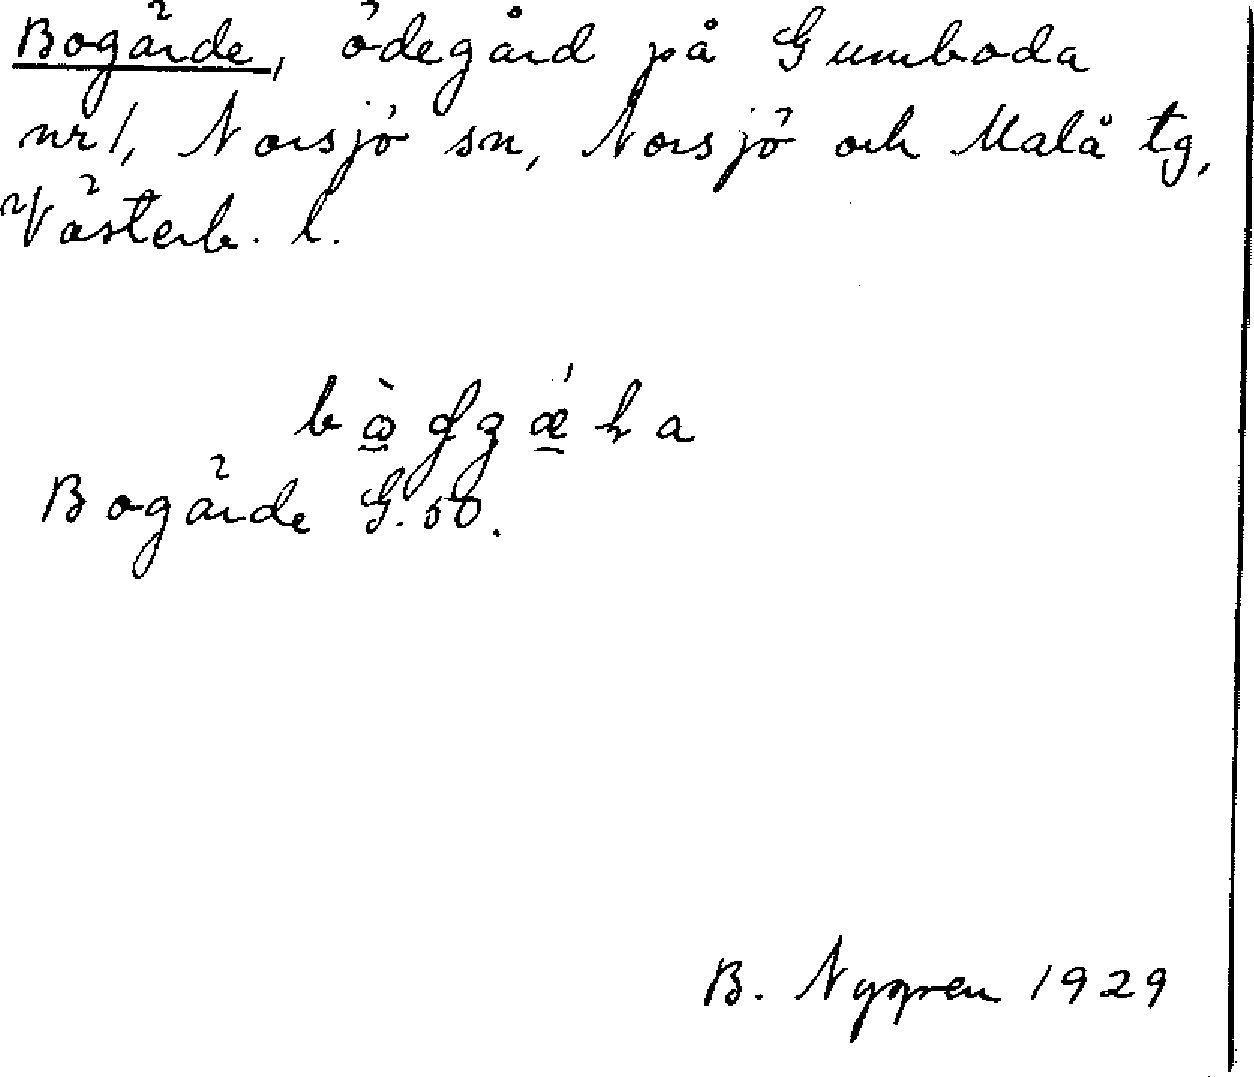 Bogärde, ödegård på Gumboda
nr 1, Norsjö sn, Norsjö och Malå tg,
Västerb. l.
Bogärde G.50.
B. Nygren 1929